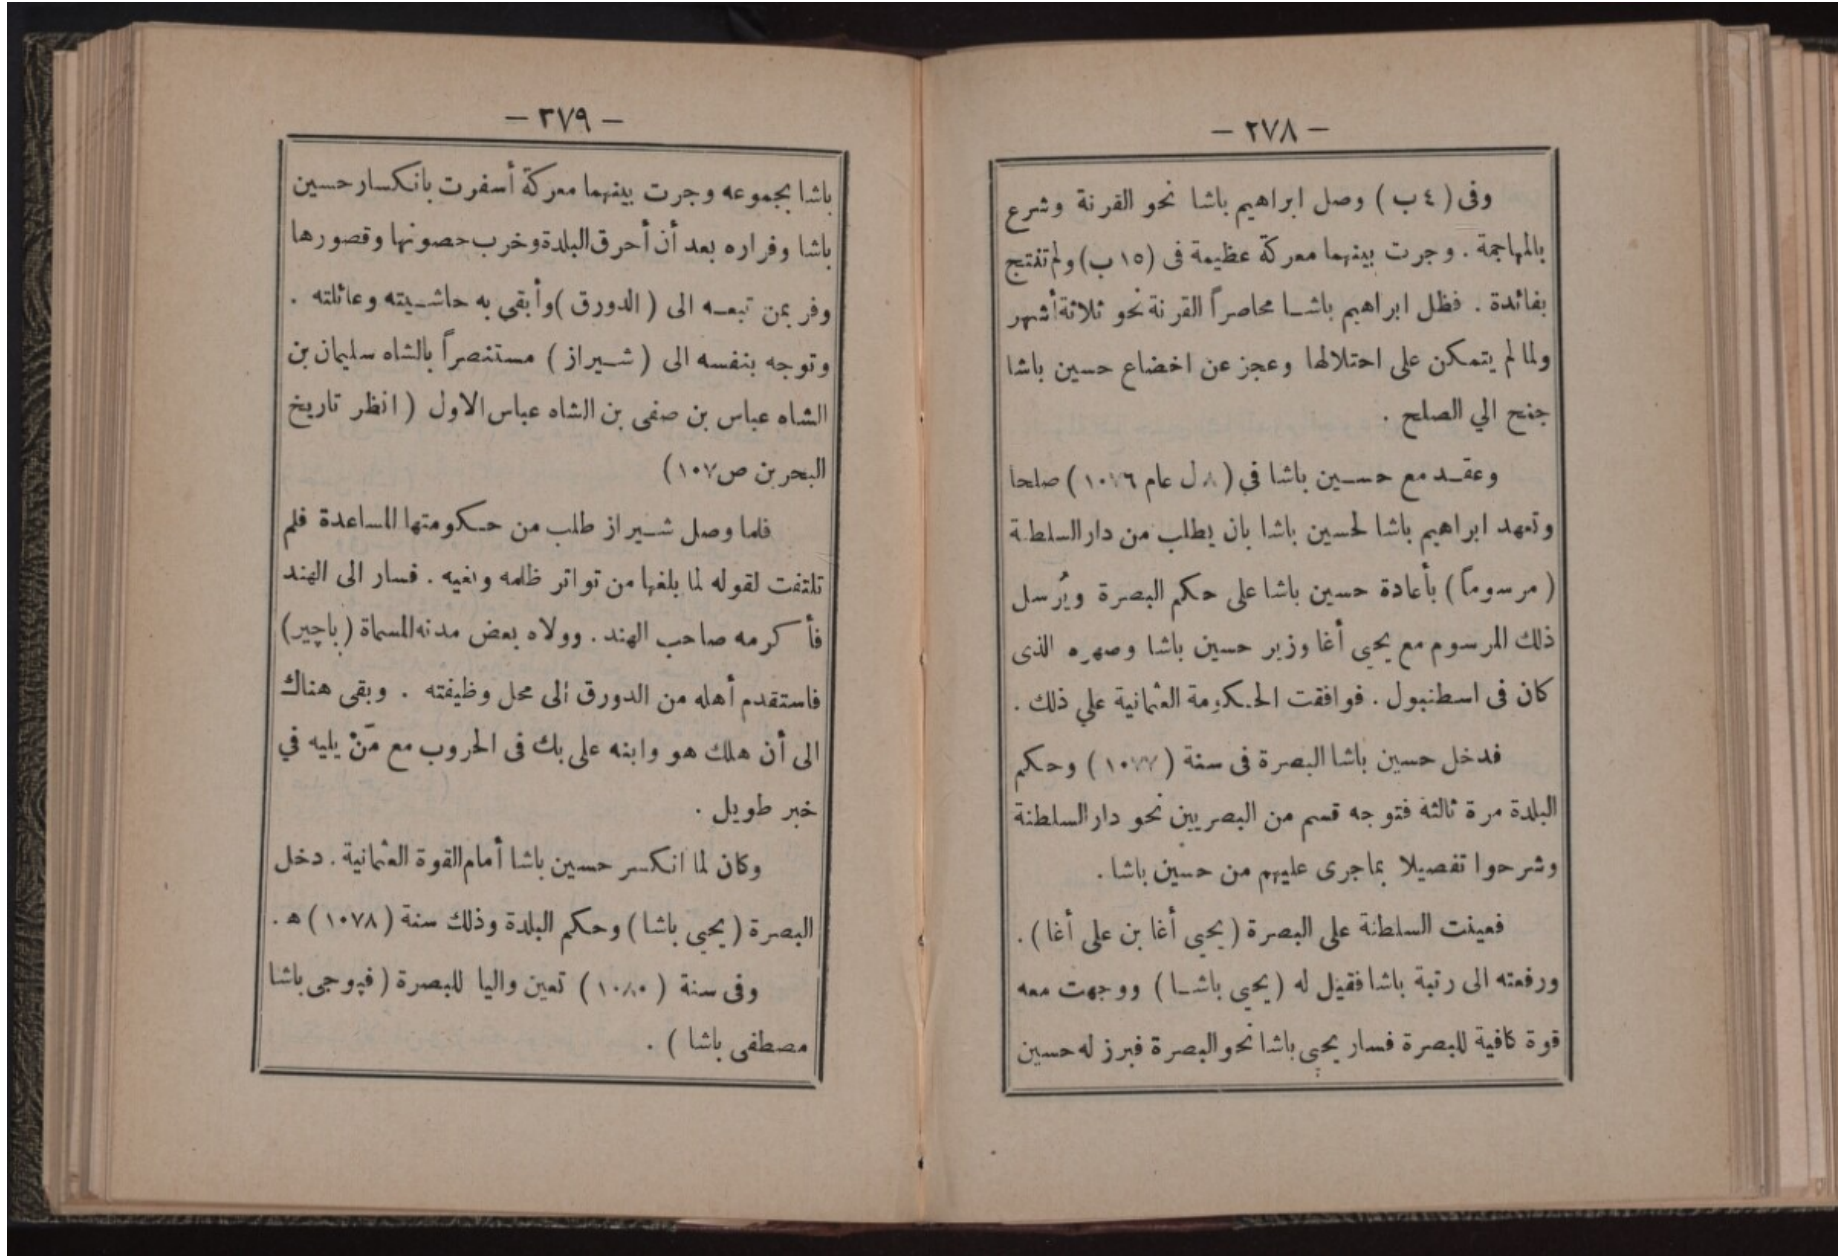 — ٢٧٨ —
وفى (٤ ب) وصل ابراهيم باشا نحو القرنة وشرع
بالمهاجمة . وجرت بينهما معركة عظيمة فى (١٥ ب) ولم تنتج
بفائدة . فظل ابراهيم باشا محاصراً القرنة نحو ثلاثة أشهر
ولما لم يتمكن على احتلالها وعجز عن اخضاع حسين باشا
جنح الي الصلح .
وعقد مع حسين باشا في (٨ ل عام ١٠٧٦) صلحا
وتعهد ابراهيم باشا لحسين باشا بان يطلب من دار السلطنة
(مرسوماً) بأعادة حسين باشا على حكم البصرة ويُرسل
ذلك المرسوم مع يحيى أغا وزير حسين باشا وصهره الذى
كان فى اسطنبول . فوافقت الحكومة العثمانية علي ذلك .
فدخل حسين باشا البصرة فى سنة (١٠٧٧) وحكم
البلدة مرة ثالثة فتوجه قسم من البصريين نحو دار السلطنة
وشرحوا تفصيلا بماجرى عليهم من حسين باشا .
فعينت السلطنة على البصرة (يحيى أغا بن على أغا) .
ورفعته الى رتبة باشا فقيل له (يحيى باشا) ووجهت معه
قوة كافية للبصرة فسار يحيى باشا نحو البصرة فبرز له حسين
— ٢٧٩ —
باشا بجموعه وجرت بينهما معركة أسفرت بانكسار حسين
باشا وفراره بعد أن أحرق البلدة وخرب حصونها وقصورها
وفر بمن تبعه الى (الدورق) وأبقى به حاشيته وعائلته .
وتوجه بنفسه الى (شيراز) مستنصراً بالشاه سليمان بن
الشاه عباس بن صفى بن الشاه عباس الاول (انظر تاريخ
البحرين ص١٠٧)
فلما وصل شيراز طلب من حكومتها المساعدة فلم
تلتفت لقوله لما بلغها من تواتر ظلمه وبغيه . فسار الى الهند
فأكرمه صاحب الهند . وولاه بعض مدنه المسماة (باچير)
فاستقدم أهله من الدورق الى محل وظيفته . وبقى هناك
الى أن هلك هو وابنه على بك فى الحروب مع مَنْ يليه في
خبر طويل .
وكان لما انكسر حسين باشا أمام القوة العثمانية . دخل
البصرة (يحيى باشا) وحكم البلدة وذلك سنة (١٠٧٨) ه .
وفى سنة (١٠٨٠) تعين واليا للبصرة (فپوجى باشا
مصطفى باشا) .